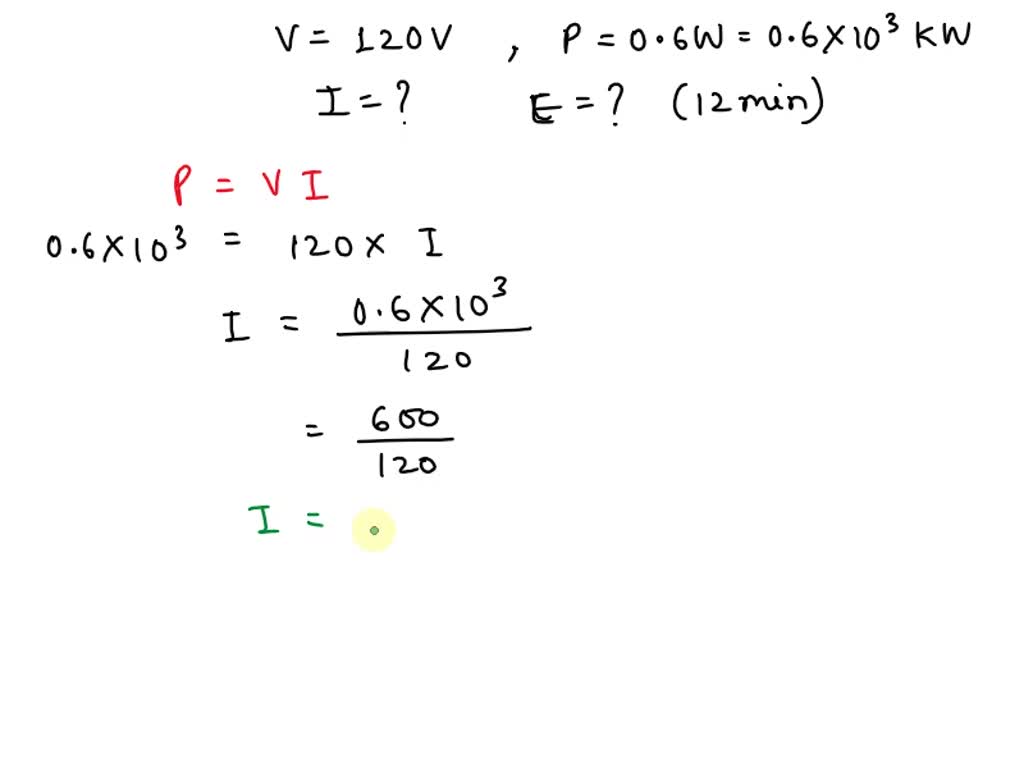 V = 120V , P = 0.6W = 0.6×10³ KW
I = ? E = ? (12 min)
P = V I
0.6×10³ = 120 × I
I = 0.6×10³ / 120
= 600 / 120
I =